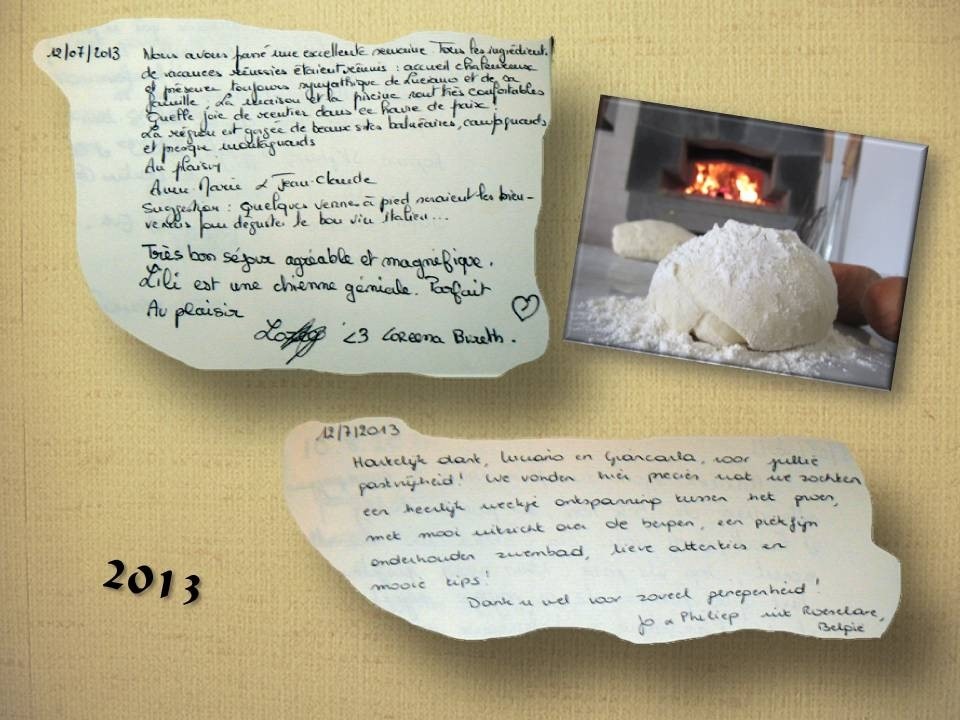 12/07/2013
Nous avons passé une excellente semaine Tous les ingrédients
de vacances réussies étaient réunis : accueil chaleureux
et présence toujours sympathique de Luciano et de sa
famille. La maison et la piscine sont très confortables
Quelle joie de rentrer dans ce havre de paix !
La région est gorgée de beaux sites balnéaires, campagnards
et presque montagnards
Au plaisir
Anne-Marie & Jean-Claude
Suggestion : Quelques verres à pied seraient les bien-
venus pour déguster le bon vin italien...
Très bon séjour agréable et magnifique.
Lili est une chienne géniale. Parfait
Au plaisir
<3 Loreena
12/7/2013
Hartelijk dank, Luciano en Giancarla, voor jullie
gastvrijheid! We vonden hier precies wat we zochten
een heerlijk weekje ontspanning tussen het groen,
met mooi uitzicht over de bergen, een piekfijn
onderhouden zwembad, lieve attenties en
mooie tips!
Dank u wel voor zoveel genegenheid!
Jo & Philiep uit Roeselare,
België
2013